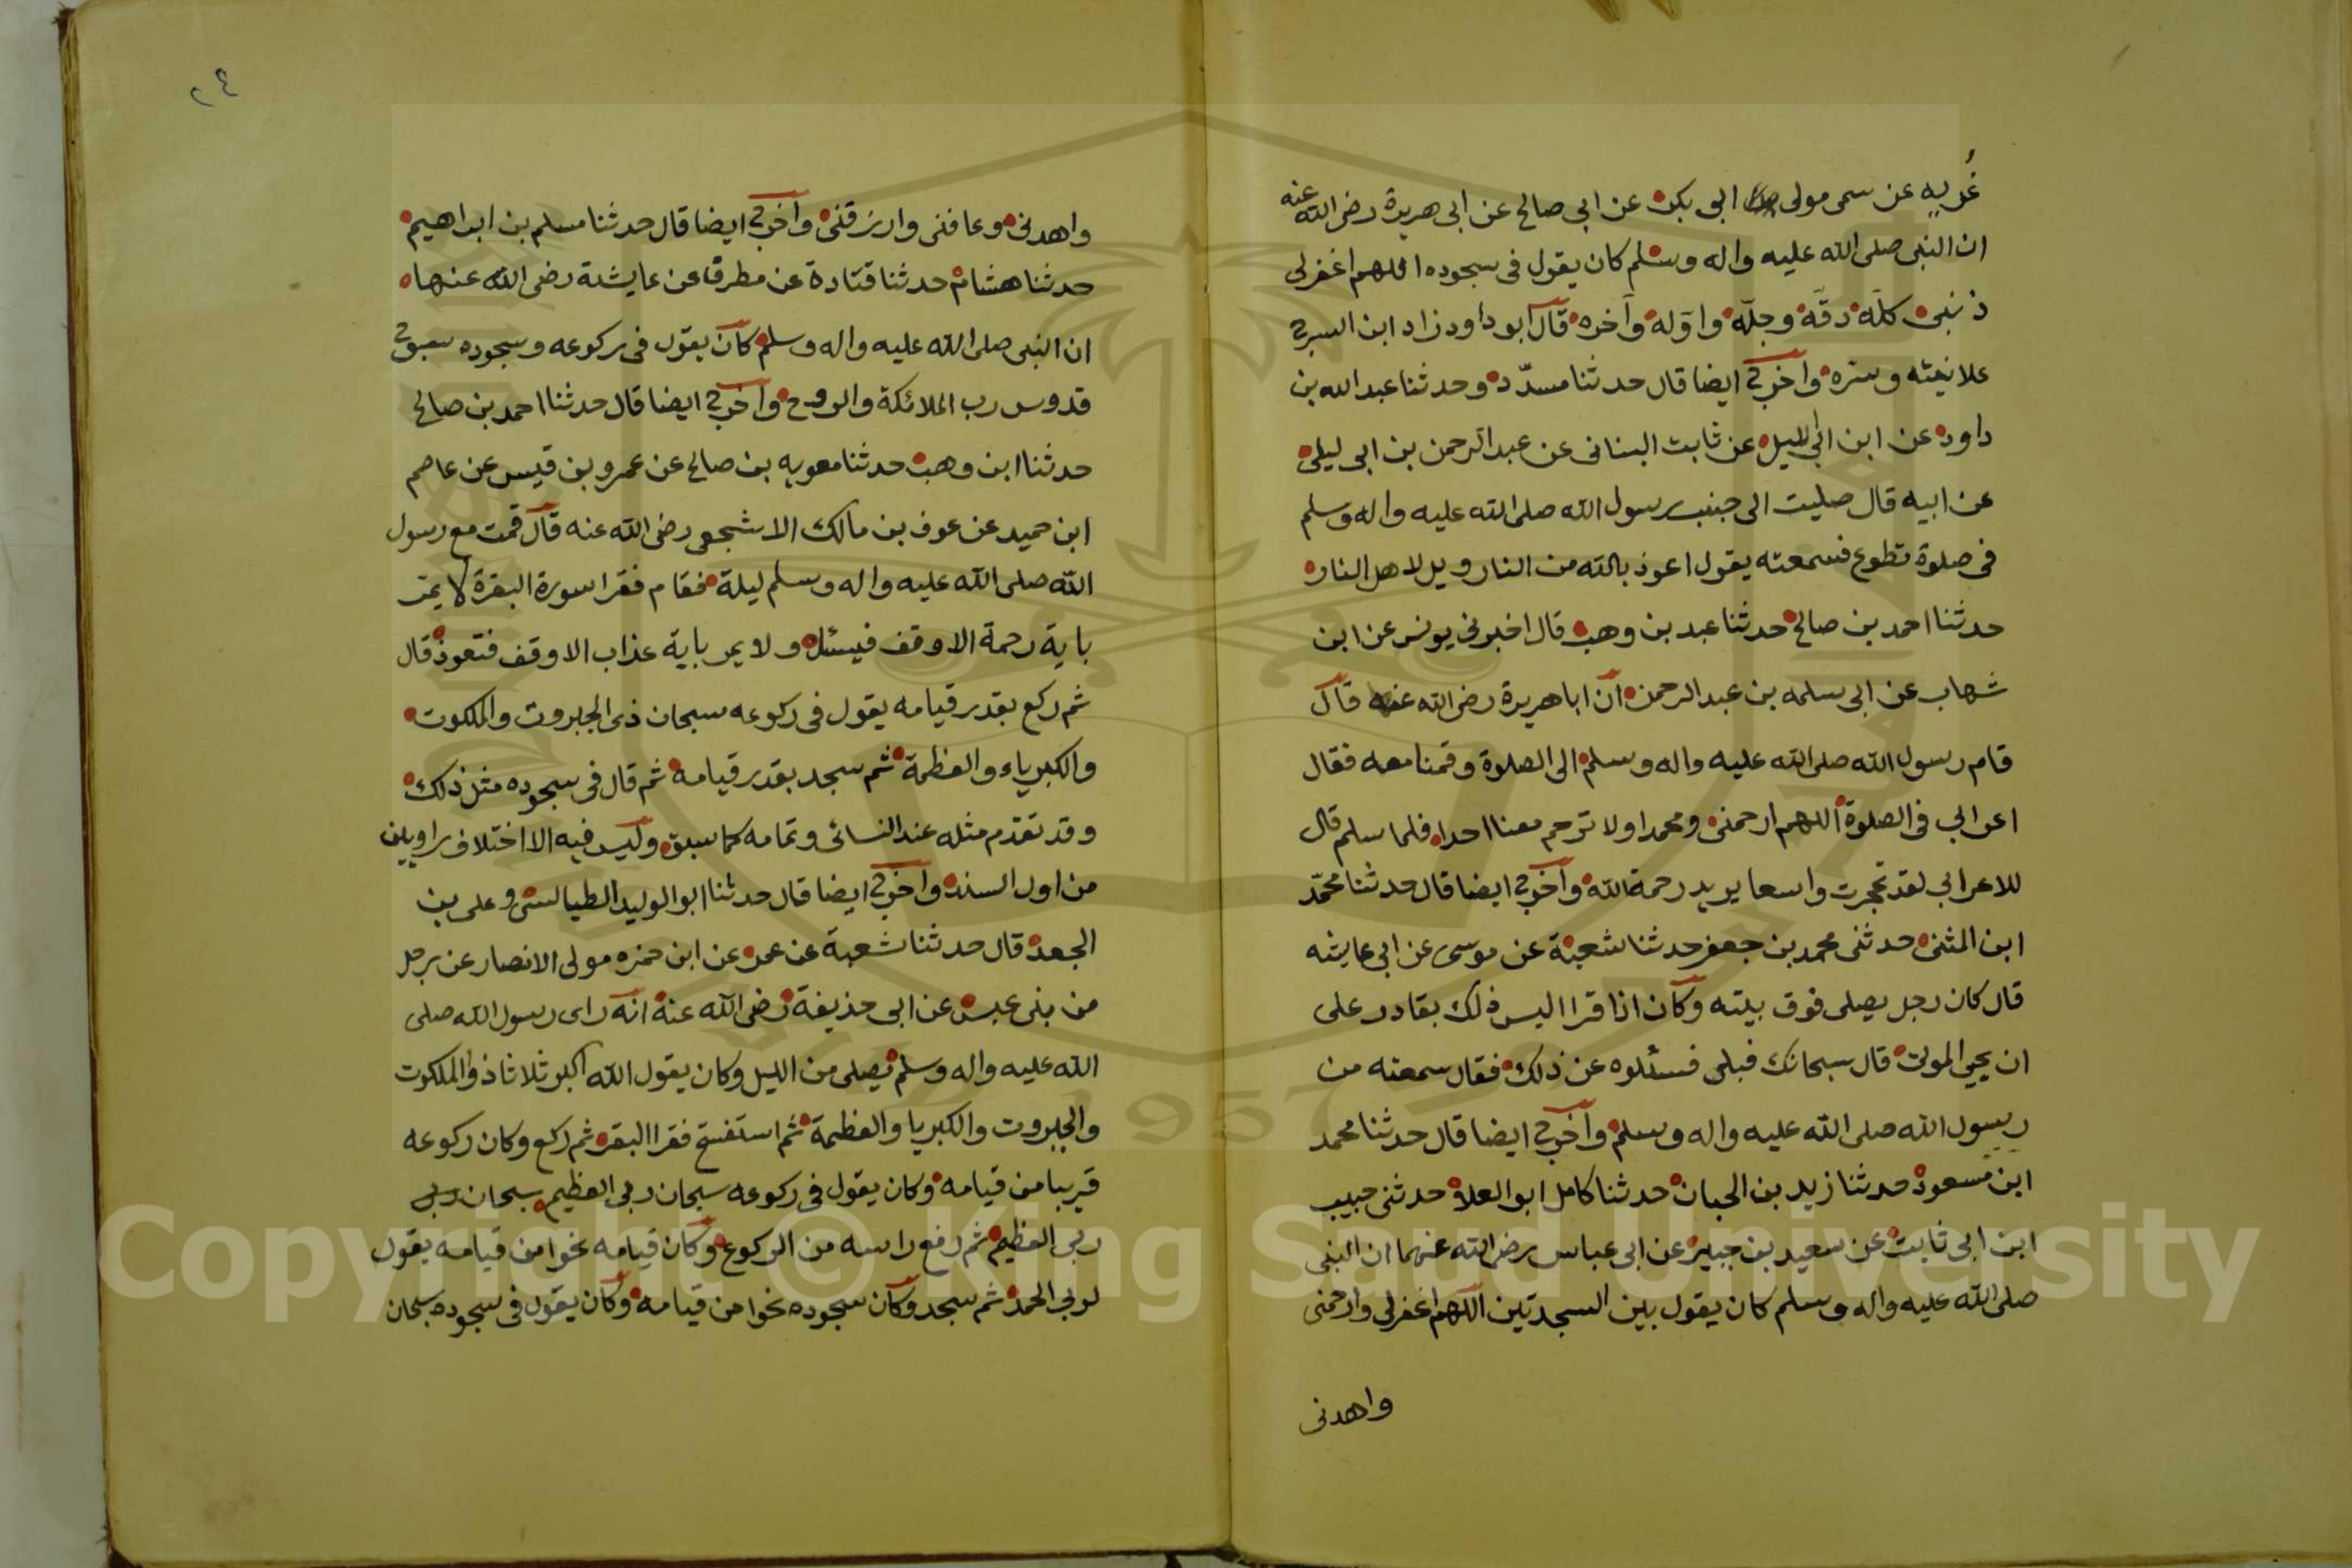 غزيه عن سمى مولى ابى بكر عن ابى صالح عن ابى هريرة رضى الله عنه
ان النبى صلى الله عليه واله وسلم كان يقول فى سجوده اللهم اغفرلى
ذنبى كلّه دقّه وجلّه واوّله وآخره قال ابو داود زاد ابن السرح
علانيته وسره واخرج ايضا قال حدثنا مسدّد وحدثنا عبد الله بن
داود عن ابن ابى ليلى عن ثابت البنانى عن عبد الرحمن بن ابى ليلى
عن ابيه قال صليت الى جنب رسول الله صلى الله عليه واله وسلم
فى صلوة تطوع فسمعته يقول اعوذ بالله من النار ويل لاهل النار
حدثنا احمد بن صالح حدثنا عبد بن وهب قال اخبرنى يونس عن ابن
شهاب عن ابى سلمه بن عبد الرحمن ان ابا هريرة رضى الله عنه قال
قام رسول الله صلى الله عليه واله وسلم الى الصلوة وقمنا معه فقال
اعرابي فى الصلوة اللهم ارحمنى ومحمدا ولا ترحم معنا احدا فلما سلم قال
للاعرابي لقد تحجرت واسعا يريد رحمة الله واخرج ايضا قال حدثنا محمّد
ابن المثنى حدثنى محمد بن جعفر حدثنا شعبة عن موسى عن ابي عايشه
قال كان رجل يصلى فوق بيته وكان اذا قرا اليس ذلك بقادر على
ان يحيي الموتى قال سبحانك فبلى فسئلوه عن ذلك فقال سمعته من
رسول الله صلى الله عليه واله وسلم واخرج ايضا قال حدثنا محمد
ابن مسعود حدثنا زيد بن الحبان حدثنا كامل ابو العلا حدثنى حبيب
ابن ابى ثابت عن سعيد بن جبير عن ابى عباس رضى الله عنهما ان النبى
صلى الله عليه واله وسلم كان يقول بين السجدتين اللهم اغفرلى وارحمنى
واهدنى
٢٤
واهدنى وعافنى وارزقنى واخرج ايضا قال حدثنا مسلم بن ابراهيم
حدثنا هشام حدثنا قتادة عن مطرف عن عايشة رضى الله عنها
ان النبى صلى الله عليه واله وسلم كان يقول فى ركوعه وسجوده سبوح
قدوس رب الملائكة والروح واخرج ايضا قال حدثنا احمد بن صالح
حدثنا ابن وهب حدثنا معويه بن صالح عن عمرو بن قيس عن عاصم
ابن حميد عن عوف بن مالك الاشجعى رضى الله عنه قال قمت مع رسول
الله صلى الله عليه واله وسلم ليلة فقام فقرا سورة البقرة لا يمرّ
باية رحمة الا وقف فيسئل ولا يمر باية عذاب الا وقف فتعوذ قال
ثم ركع بقدر قيامه يقول فى ركوعه سبحان ذى الجبروت والملكوت
والكبرياء والعظمة ثم سجد بقدر قيامه ثم قال فى سجوده مثل ذلك
وقد تقدم مثله عند النسائى وتمامه كما سبق وليس فيه الا اختلاف راويين
من اول السند واخرج ايضا قال حدثنا ابو الوليد الطيالسى وعلى بن
الجعد قال حدثنا شعبة عن عمر عن ابن حمزه مولى الانصار عن رجل
من بنى عبس عن ابى حذيفة رضى الله عنه انه راى رسول الله صلى
الله عليه واله وسلم يصلى من الليل وكان يقول الله اكبر ثلاثا ذو الملكوت
والجبروت والكبريا والعظمة ثم استفتح فقرا البقره ثم ركع وكان ركوعه
قريبا من قيامه وكان يقول فى ركوعه سبحان ربى العظيم سبحان ربى
ربى العظيم ثم رفع راسه من الركوع وكان قيامه نحوا من قيامه يقول
لربى الحمد ثم سجد وكان سجوده نحوا من قيامه وكان يقول فى سجوده سبحان
Copyright © King Saud University
1957